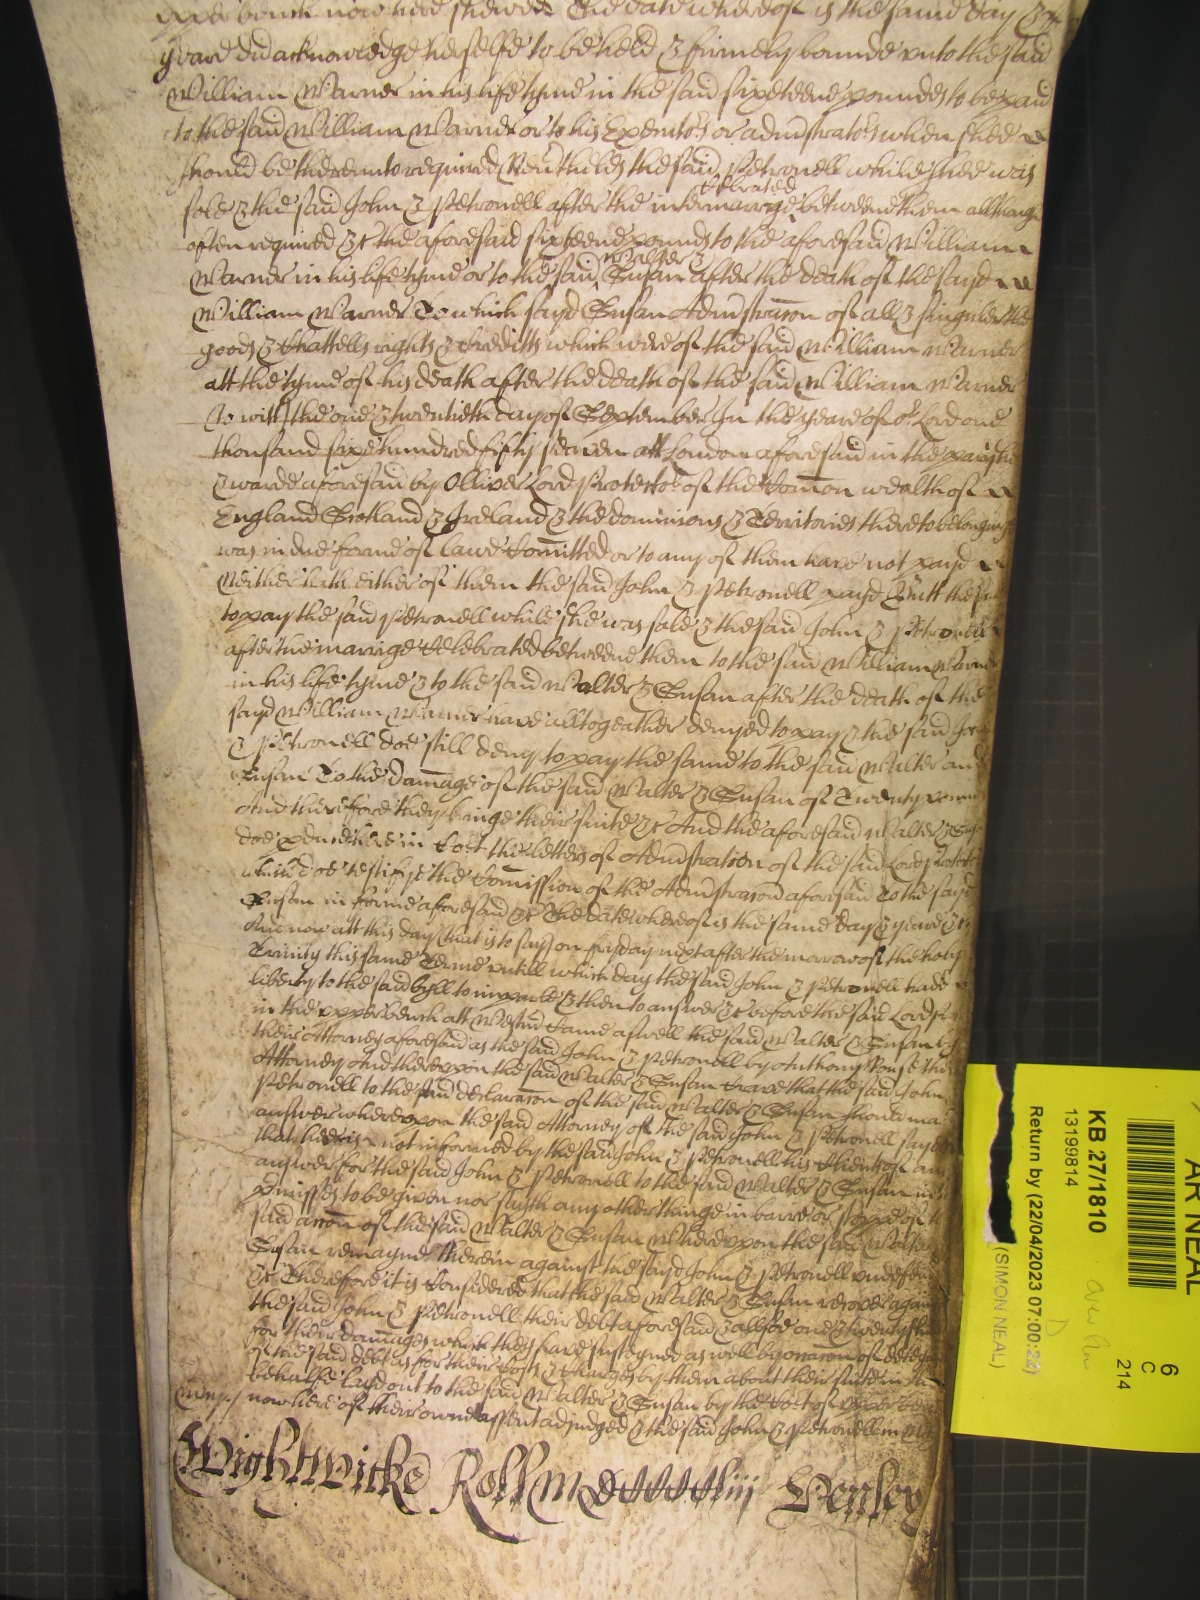 upper bench now here shewed The date whereof is the same day &
yeare did acknowledge herselfe to be held & firmely bounde unto the said
William Warner in his life tyme in the said sixeteene poundes to be paid
to the said William Warner or to his Executors or administrators when shee
should be thereunto required Neverthelesse the said Petronell while shee was
sole & the said John & Petronell after the intermarrige celebrated betweene them allthough
often required &c the aforesaid sixteene pounds to the aforesaid William
Warner in his life tyme or to the said Walter & Susan after the death of the sayd
William Warner To which sayd Susan Adminstracon of all & singuler the
goods & Chattells rights & Creditts which were of the said William Warner
att the tyme of his death after the death of the said William Warner
to witt the one & twentieth day of September In the yeare of or Lord one
thousand sixe hundred fifty seaven att London aforesaid in the parishe
& warde aforesaid by Olliver Lord Protector of the Common wealth of
England Scotland & Ireland & the dominions & Territories thereto belonging
was in due forme of lawe Committed or to any of them have not payd
Neither hath either of them the said John & Petronell payd Butt the same
to pay the said Petronell while she was sole & the said John & Petronell
after the marrige Celebrated betweene them to the said William Warner
in his life tyme & to the said Walter & Susan after the death of the
sayd William Warner have alltogeather denyed to pay & the said John
& Petronell doe still deny to pay the same to the said Walter and
Susan To the damage of the said Walter & Susan of Twenty pounds
And therefore they bringe their suite &c And the aforesaid Walter & Susan
doe here in Cort the letters of Adminstration of the said Lord Protector
which doe testifye the Comission of the Adminstracon aforesaid To the sayd
Susan in forme aforesaid &c The date whereof is the same day & yeare &c
And now att this day that is to say on fryday next after the morrow of the holy
Trinity this same Terme untill which day the said John & Petronell hade
liberty to the said byll to imparle & then to answer &c before the said Lord
in the upper bench att Westmr Came aswell the said Walter & Susan by
their Attorney aforesaid as the said John & Petronell by Anthony Rouse their
Attorney And thereupon the said Walter & Susan crave that the said John
Petronell to the said declaracon of the said Walter & Susan should ma
answer whereupon the said Attorney of the said John & Petronell sayeth
that hee is not informed by the said John & Petronell his Clients of any
answer for the said John & Petronell to the said Walter & Susan in the
premisses to be given nor sayth any other thinge in barre or of the
said accon of the said Walter & Susan Whereupon the said Walter
Susan remayne therein against the sayd John & Petronell undefended
&c Therefore it is Considered that the said Walter & Susan recover against
the said John & Petronell their debt aforesaid & allsoe one & twenty
for their damages which they have susteyned as well by occacon of deteyning
of the said debt as for their Costs & charges by them about their suite in that
behalfe layd out to the said Walter & Susan by the Cort of upper bench
now here of their owne assent adjudged & the said John & Petronell in
Wightwicke Roll Henley
AR NEAL
KB 27/1810
13199814
Return by (22/04/2023 07:00:22)
(SIMON NEAL)
6
C
214
D